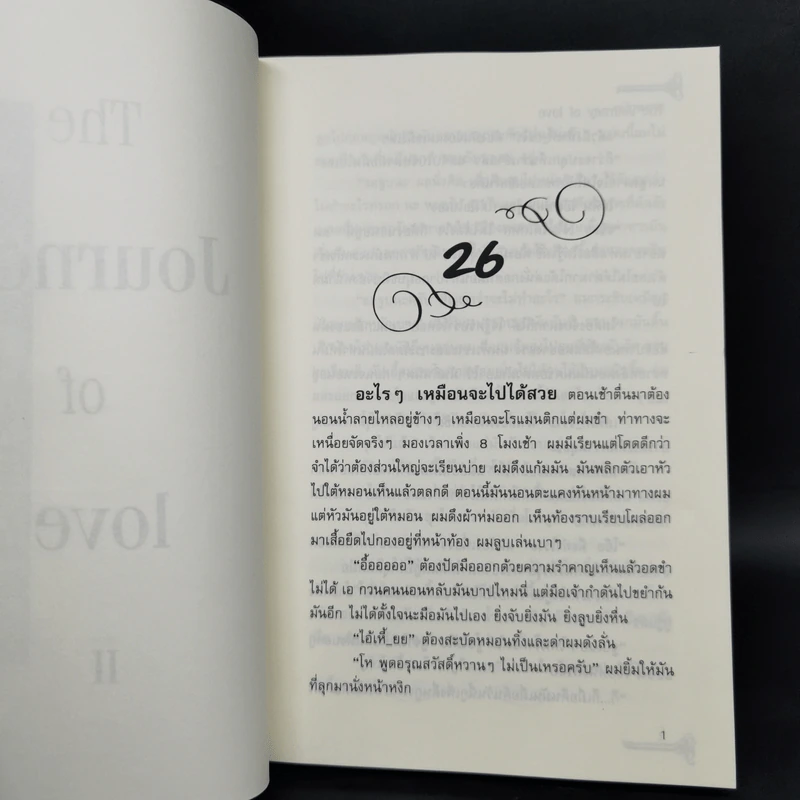 The
Journ
of
love
II
26
อะไรๆ เหมือนจะไปได้สวย ตอนเช้าตื่นมาต้อง
นอนน้ำลายไหลอยู่ข้างๆ เหมือนจะโรแมนติกแต่ผมขำ ท่าทางจะ
เหนื่อยจัดจริงๆ มองเวลาเพิ่ง 8 โมงเช้า ผมมีเรียนแต่โดดดีกว่า
จำได้ว่าต้องส่วนใหญ่จะเรียนบ่าย ผมดึงแก้มมัน มันพลิกตัวเอาหัว
ไปใต้หมอนเห็นแล้วตลกดี ตอนนี้มันนอนตะแคงหันหน้ามาทางผม
แต่หัวมันอยู่ใต้หมอน ผมดึงผ้าห่มออก เห็นท้องราบเรียบโผล่ออก
มาเสื้อยืดไปกองอยู่ที่หน้าท้อง ผมลูบเล่นเบาๆ
“อื้อออออ” ต้องปัดมือออกด้วยความรำคาญเห็นแล้วอดขำ
ไม่ได้ เอ กวนคนนอนหลับมันบาปไหมนี่ แต่มือเจ้ากำดันไปขยำก้น
มันอีก ไม่ได้ตั้งใจนะมือมันไปเอง ยิ่งจับยิ่งมัน ยิ่งลูบยิ่งหื่น
“ไอ้เหี้_ยย” ต้องสะบัดหมอนทิ้งและด่าผมดังลั่น
“โห พูดอรุณสวัสดิ์หวานๆ ไม่เป็นเหรอครับ” ผมยิ้มให้มัน
ที่ลุกมานั่งหน้าหงิก
1